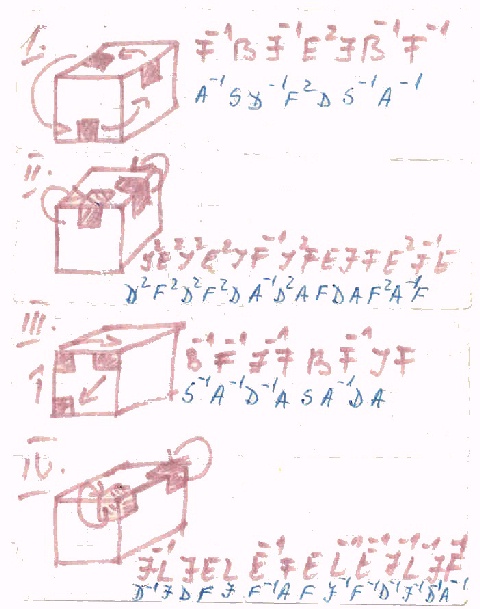 I. F⁻¹ B J⁻¹ E² J B⁻¹ F⁻¹
A⁻¹ S D⁻¹ F² D S⁻¹ A⁻¹
II.
D² F² D² F² D A⁻¹ D² A F D A F² A⁻¹ F
III. B⁻¹ F⁻¹ J⁻¹ F B F⁻¹ J F
S⁻¹ A⁻¹ D⁻¹ A S A⁻¹ D A
IV.
D⁻¹ J D F J F⁻¹ A F J⁻¹ F⁻¹ D⁻¹ J⁻¹ D A⁻¹